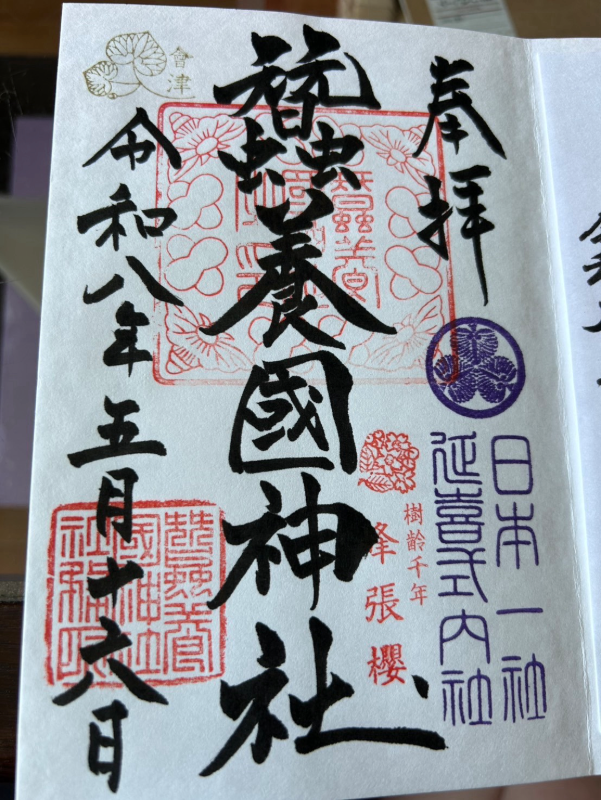 奉拝
日本一社
延喜式内社
樹齢千年
峰張櫻
蠶養國神社
蠶養
會津
令和八年五月十六日
蠶養
國神社